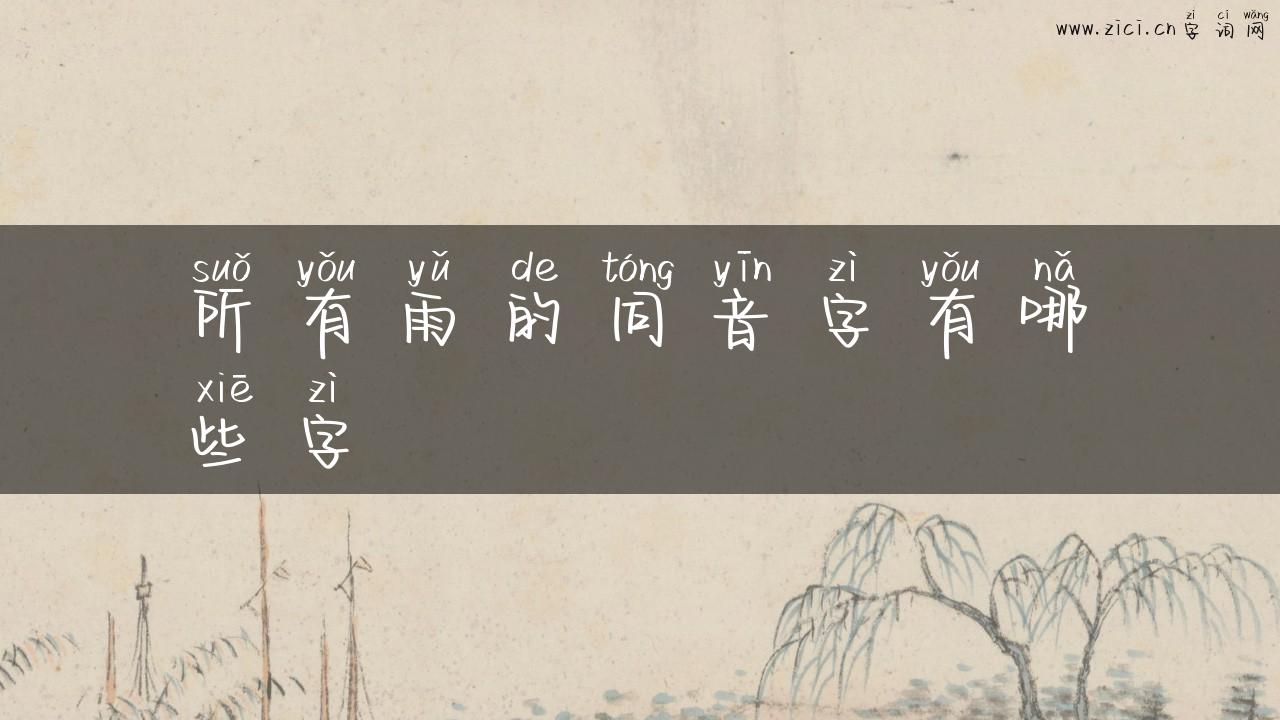 zì cí wǎng
www.zici.cn 字 词 网
suǒ yǒu yǔ de tóng yīn zì yǒu nǎ
所 有 雨 的 同 音 字 有 哪
xiē zì
些 字